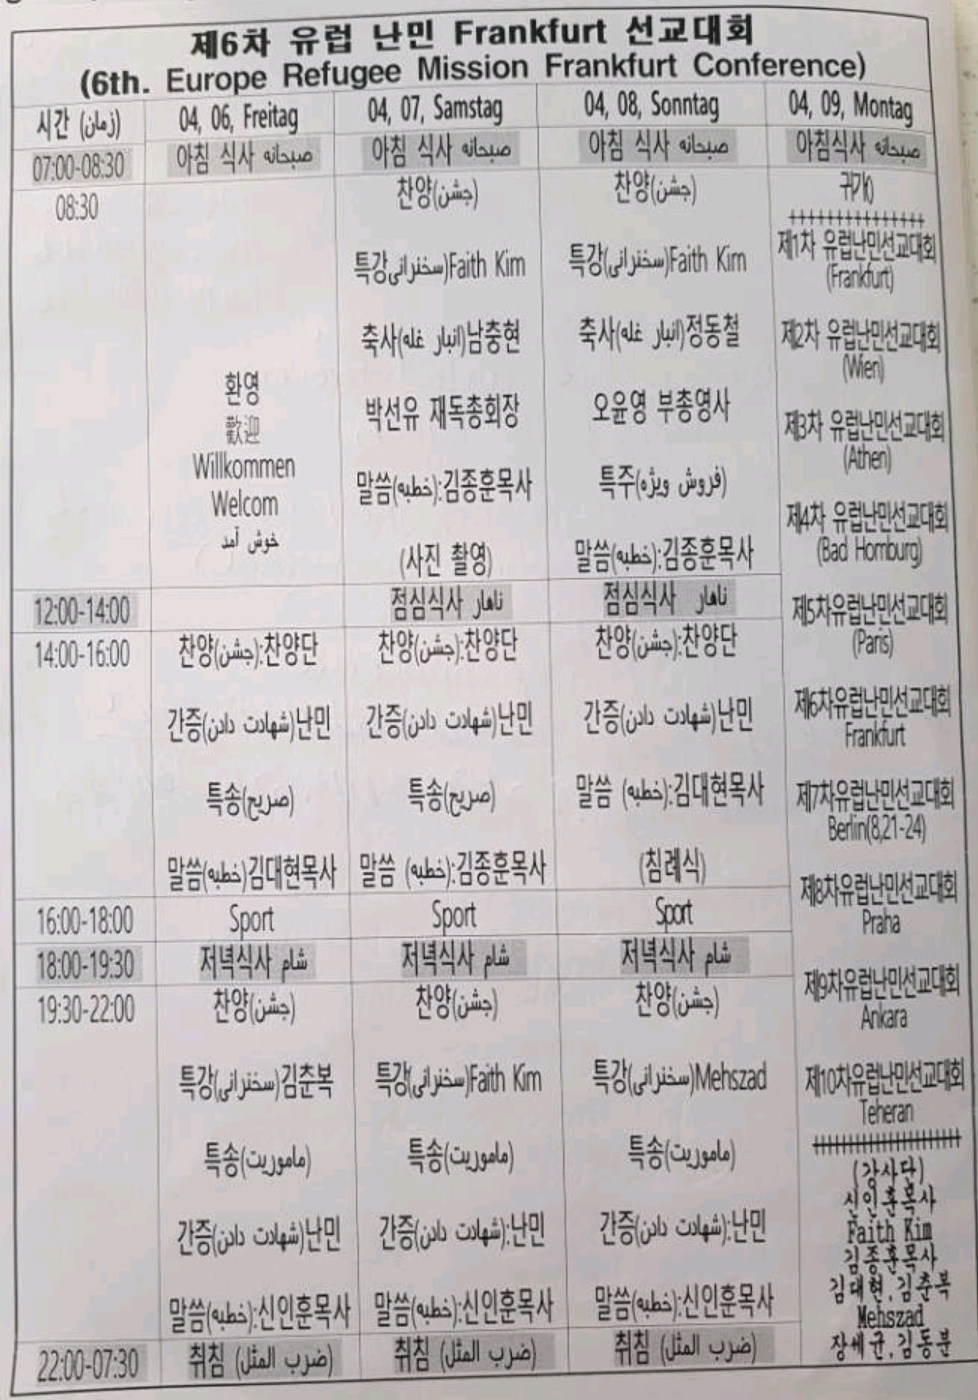 제6차 유럽 난민 Frankfurt 선교대회
(6th. Europe Refugee Mission Frankfurt Conference)
시간 (زمان) 04, 06, Freitag 04, 07, Samstag 04, 08, Sonntag 04, 09, Montag
07:00-08:30 아침 식사 صبحانه 아침 식사 صبحانه 아침 식사 صبحانه 아침식사 صبحانه
08:30
환영
歡迎
Willkommen
Welcom
خوش آمد
찬양(جشن)
특강(سخنرانی)Faith Kim
축사(انبار غله)남충현
박선유 재독총회장
말씀(خطبه):김종훈목사
(사진 촬영)
찬양(جشن)
특강(سخنرانی)Faith Kim
축사(انبار غله)정동철
오윤영 부총영사
특주(فروش ویژه)
말씀(خطبه):김종훈목사
12:00-14:00 점심식사 ناهار 점심식사 ناهار
14:00-16:00
찬양(جشن):찬양단
간증(شهادت دادن)난민
특송(صریح)
말씀(خطبه)김대현목사
찬양(جشن):찬양단
간증(شهادت دادن)난민
특송(صریح)
말씀 (خطبه):김종훈목사
찬양(جشن):찬양단
간증(شهادت دادن)난민
말씀 (خطبه):김대현목사
(침례식)
16:00-18:00 Sport Sport Sport
18:00-19:30 저녁식사 شام 저녁식사 شام 저녁식사 شام
19:30-22:00
찬양(جشن)
특강(سخنرانی)김춘복
특송(ماموریت)
간증(شهادت دادن)난민
말씀(خطبه):신인훈목사
찬양(جشن)
특강(سخنرانی)Faith Kim
특송(ماموریت)
간증(شهادت دادن):난민
말씀(خطبه):신인훈목사
찬양(جشن)
특강(سخنرانی)Mehszad
특송(ماموریت)
간증(شهادت دادن):난민
말씀(خطبه):신인훈목사
22:00-07:30 취침 (ضرب المثل) 취침 (ضرب المثل) 취침 (ضرب المثل)
++++++++++++++++
제1차 유럽난민선교대회
(Frankfurt)
제2차 유럽난민선교대회
(Wien)
제3차 유럽난민선교대회
(Athen)
제4차 유럽난민선교대회
(Bad Homburg)
제5차유럽난민선교대회
(Paris)
제6차유럽난민선교대회
Frankfurt
제7차유럽난민선교대회
Berlin(8,21-24)
제8차유럽난민선교대회
Praha
제9차유럽난민선교대회
Ankara
제10차유럽난민선교대회
Teheran
++++++++++++++++++
(강사단)
신인훈목사
Faith Kim
김종훈목사
김대현,김춘복
Mehszad
장세균,김동분